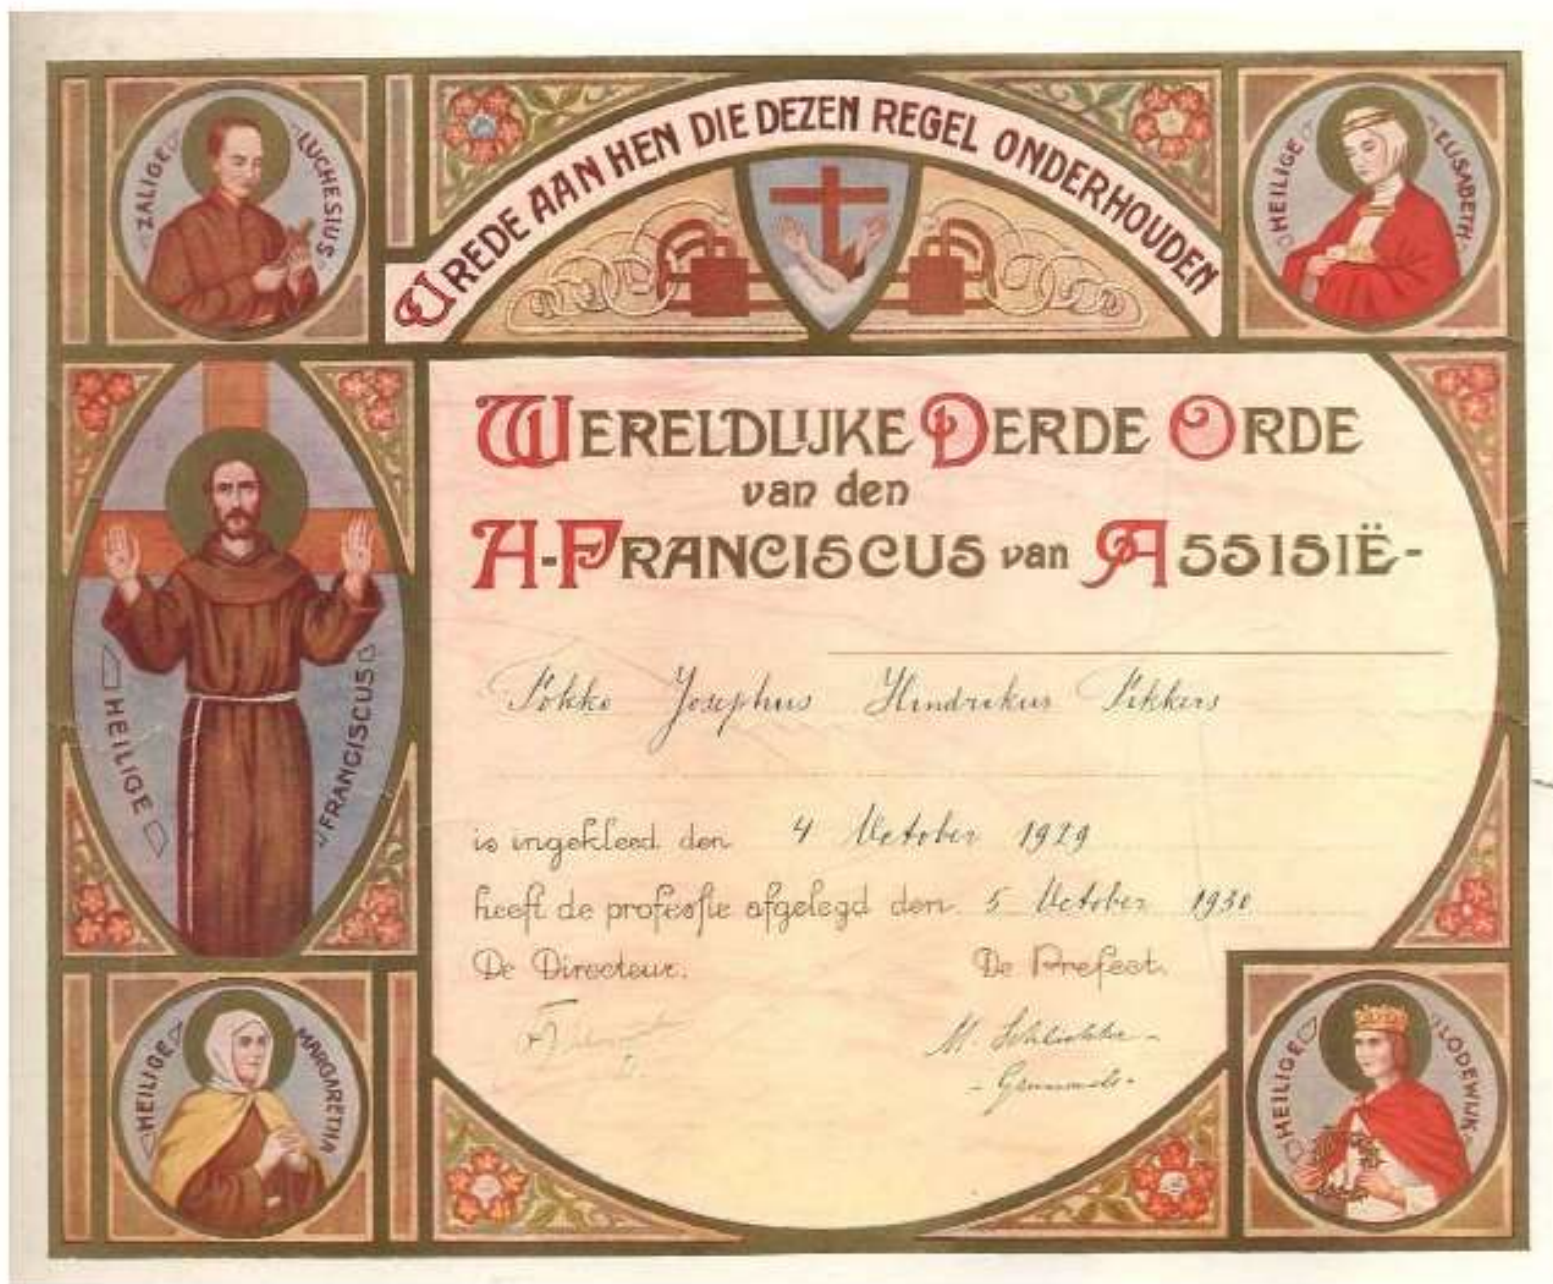 ZALIGE LUCHESIUS
VREDE AAN HEN DIE DEZEN REGEL ONDERHOUDEN
HEILIGE ELISABETH
WERELDLIJKE DERDE ORDE
van den
H-FRANCISCUS van ASSISIË-
HEILIGE FRANCISCUS
Fokko Josephus Hindrikus Fikkers
is ingekleed den 4 October 1929
heeft de professie afgelegd den 5 October 1930
De Directeur. De Prefect.
M.
HEILIGE MARGARETHA
HEILIGE LODEWIJK